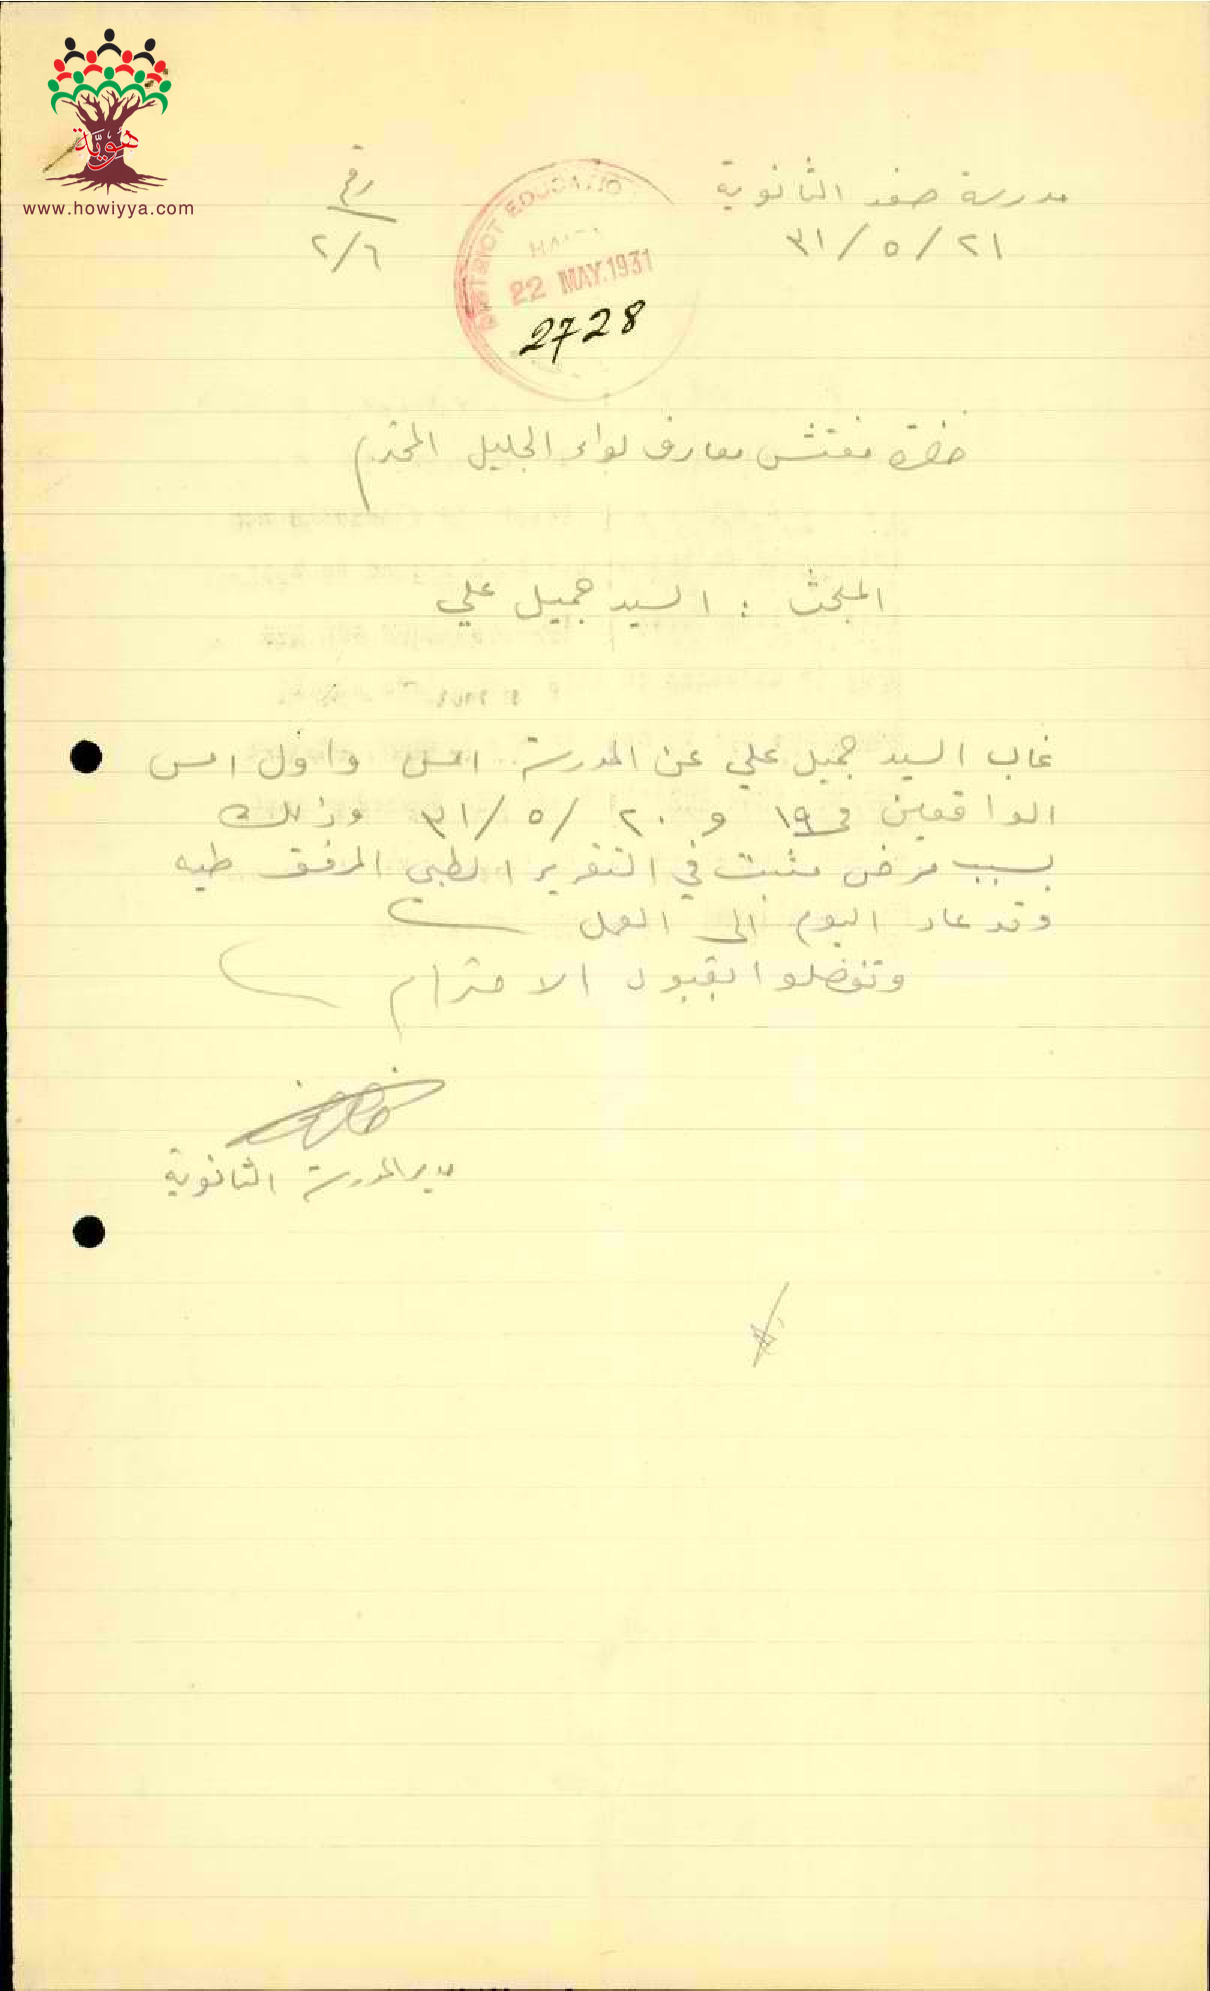 هوية
www.howiyya.com
مدرسة صفد الثانوية
رقم
٢١ / ٥ / ٣١
٢/٦
DISTRICT EDUCATIO
22 MAY.1931
2728
حضرة مفتش معارف لواء الجليل المحترم
المبحث : السيد جميل علي
غاب السيد جميل علي عن المدرسة امس واول امس
الواقعين في ١٩ و ٢٠ /٥ /٣١ وذلك
بسبب مرض مثبت في التقرير الطبي المرفق طيه
وقد عاد اليوم الى العمل
وتفضلوا بقبول الاحترام
مدير المدرسة الثانوية